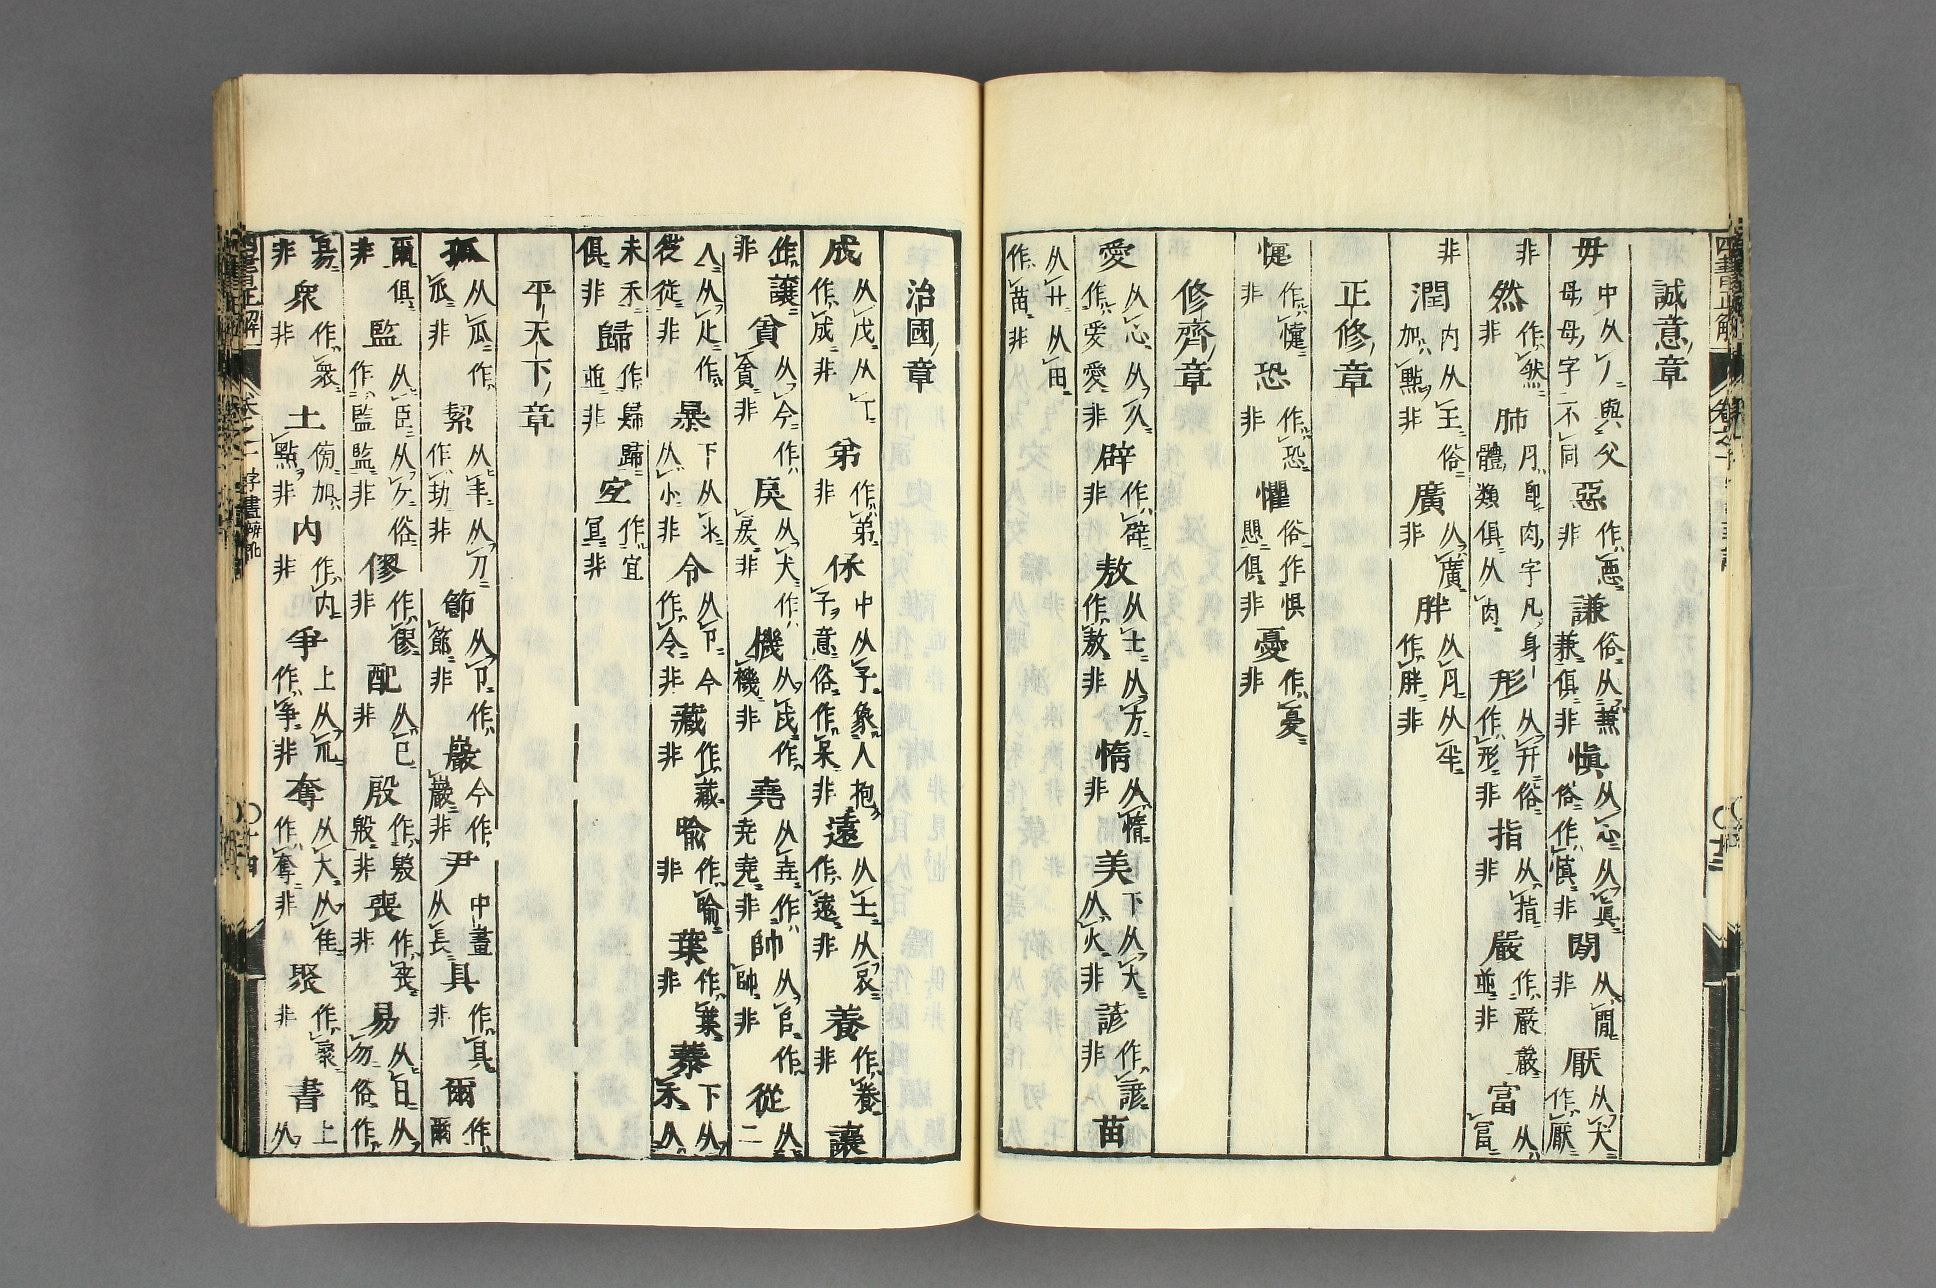 誠意章
毋中从丿與父母母字不同惡作悪非謙俗从蒹兼俱非愼从心从眞俗作慎非閒从閒非厭从犬作厭
非然作然非肺月卽肉字凡身體類俱从肉形从幵俗作形非指从指非嚴作厳嚴並非富从冨
非潤內从王俗加點非廣从廣非胖从月从半作胖非
正修章
懥作懥非恐作恐非懼俗作惧愳俱非憂作憂非
修齊章
愛从心从夊作爱愛非辟作辟非敖从土从方作敖非惰从惰非美下从大从火非諺作諺非苗
从廾从田作苗非
治國章
成从戊从丁作成非弟作弟非保中从子象人抱子意俗作呆非遠从土从𧘇作逺非養作養非讓
作譲非貪从今作貪非戾从犬作戻非機从戍作機非堯从垚作尭堯非帥从𠂤作帥非從从二
人从止作從従非暴下从氺从小非令从卩作令非藏作蔵非喻作喻非葉作葉非蓁下从禾从
未禾俱非歸作歸歸並非宜作宜冝非
平天下章
孤从瓜作孤非絜从丰从刀作絜非節从卩作節非巖今作巌非尹中畫从長非具作具非爾作爾
爾俱非監从臣从𠂉俗作監監非僇作僇非配从己非殷作殷殷非喪作丧非易从日从勿俗作
昜非衆作衆非土俗加點非內作内非爭上从爪作争非奪从大从隹作奪非聚作聚非書上从
四書正解
卷之一
字畫辨訛
十四
四書正解
卷之一
十三